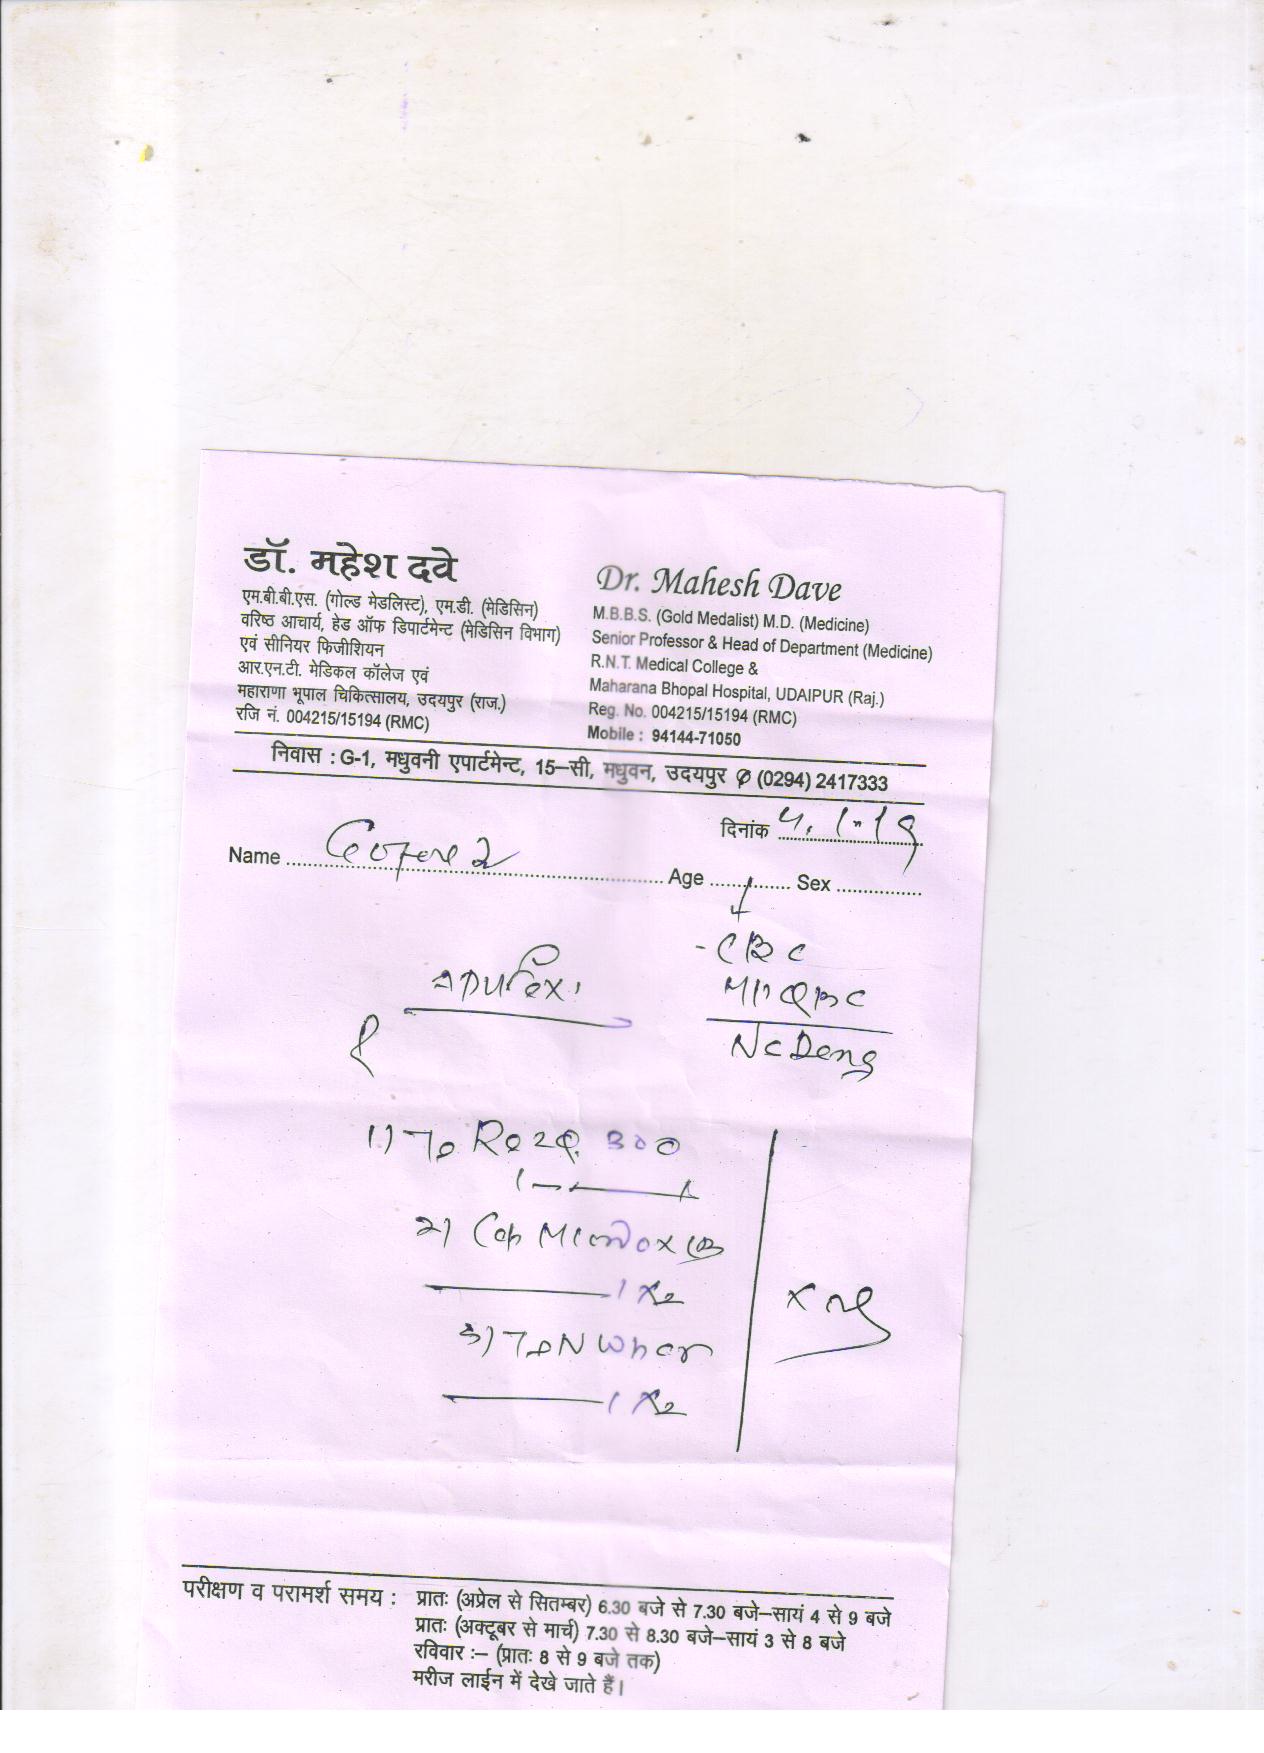 डॉ. महेश दवे
एम.बी.बी.एस. (गोल्ड मेडलिस्ट), एम.डी. (मेडिसिन)
वरिष्ठ आचार्य, हेड ऑफ डिपार्टमेन्ट (मेडिसिन विभाग)
एवं सीनियर फिजीशियन
आर.एन.टी. मेडिकल कॉलेज एवं
महाराणा भूपाल चिकित्सालय, उदयपुर (राज.)
रजि नं. 004215/15194 (RMC)
Dr. Mahesh Dave
M.B.B.S. (Gold Medalist) M.D. (Medicine)
Senior Professor & Head of Department (Medicine)
R.N.T. Medical College &
Maharana Bhopal Hospital, UDAIPUR (Raj.)
Reg. No. 004215/15194 (RMC)
Mobile : 94144-71050
निवास : G-1, मधुवनी एपार्टमेन्ट, 15–सी, मधुवन, उदयपुर (0294) 2417333
दिनांक
Name Age Sex
- CBC
MP QBC
1) 300
2) Cap
1 x 2
3)
1 x 2
परीक्षण व परामर्श समय : प्रातः (अप्रेल से सितम्बर) 6.30 बजे से 7.30 बजे–सायं 4 से 9 बजे
प्रातः (अक्टूबर से मार्च) 7.30 से 8.30 बजे–सायं 3 से 8 बजे
रविवार :– (प्रातः 8 से 9 बजे तक)
मरीज लाईन में देखे जाते हैं।